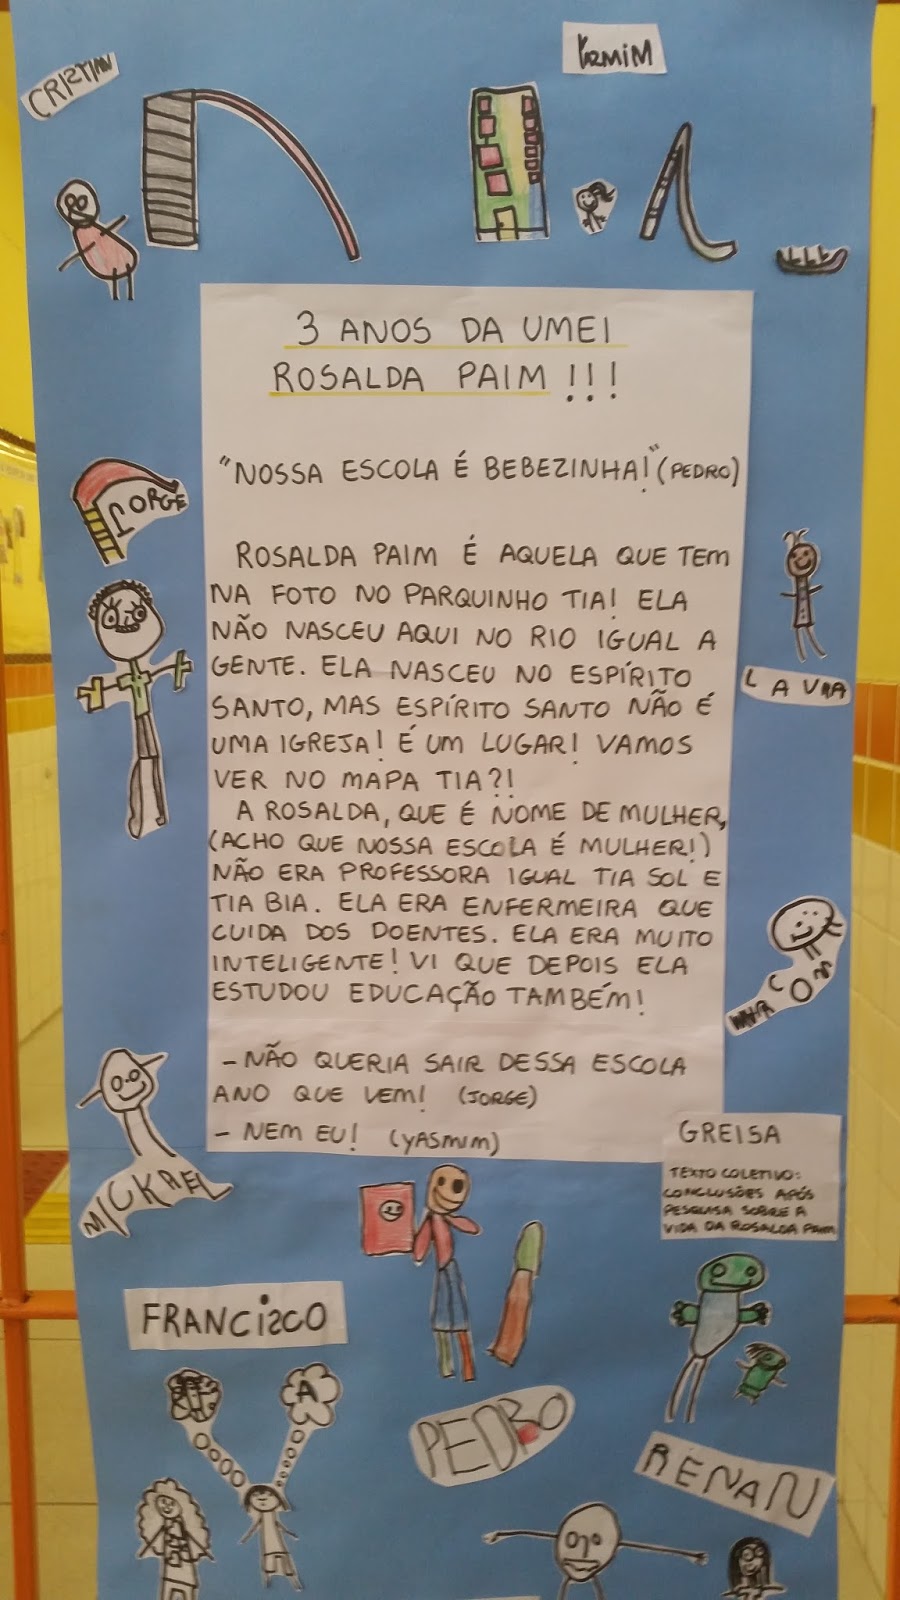 CRISTIAN
YAZMIM
3 ANOS DA UMEI
ROSALDA PAIM !!!
"NOSSA ESCOLA É BEBEZINHA!" (PEDRO)
ROSALDA PAIM É AQUELA QUE TEM
NA FOTO NO PARQUINHO TIA! ELA
NÃO NASCEU AQUI NO RIO IGUAL A
GENTE. ELA NASCEU NO ESPÍRITO
SANTO, MAS ESPÍRITO SANTO NÃO É
UMA IGREJA! É UM LUGAR! VAMOS
VER NO MAPA TIA?!
A ROSALDA, QUE É NOME DE MULHER,
(ACHO QUE NOSSA ESCOLA É MULHER!)
NÃO ERA PROFESSORA IGUAL TIA SOL E
TIA BIA. ELA ERA ENFERMEIRA QUE
CUIDA DOS DOENTES. ELA ERA MUITO
INTELIGENTE! VI QUE DEPOIS ELA
ESTUDOU EDUCAÇÃO TAMBÉM!
- NÃO QUERIA SAIR DESSA ESCOLA
ANO QUE VEM! (JORGE)
- NEM EU! (YASMIM)
JORGE
LAURA
MICKAEL
GREISA
TEXTO COLETIVO:
CONCLUSÕES APÓS
PESQUISA SOBRE A
VIDA DA ROSALDA PAIM
FRANCISCO
A
PEDRO
RENAN